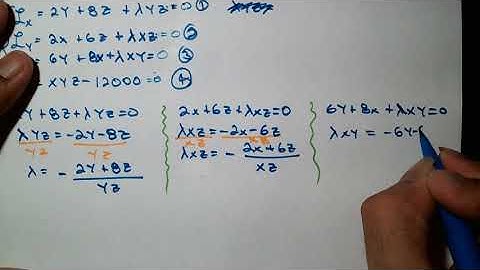 ℒx = 2Y + 8Z + λYZ = 0 ①
ℒY = 2x + 6Z + λXZ = 0 ②
= 6Y + 8x + λXY = 0 ③
XYZ - 12000 = 0 ④
Y + 8Z + λYZ = 0
λYZ = -2Y - 8Z
YZ YZ
λ = - 2Y + 8Z
YZ
2x + 6Z + λXZ = 0
λXZ = -2x - 6Z
XZ XZ
λXZ = - 2x + 6Z
XZ
6Y + 8x + λXY = 0
λXY = -6Y-